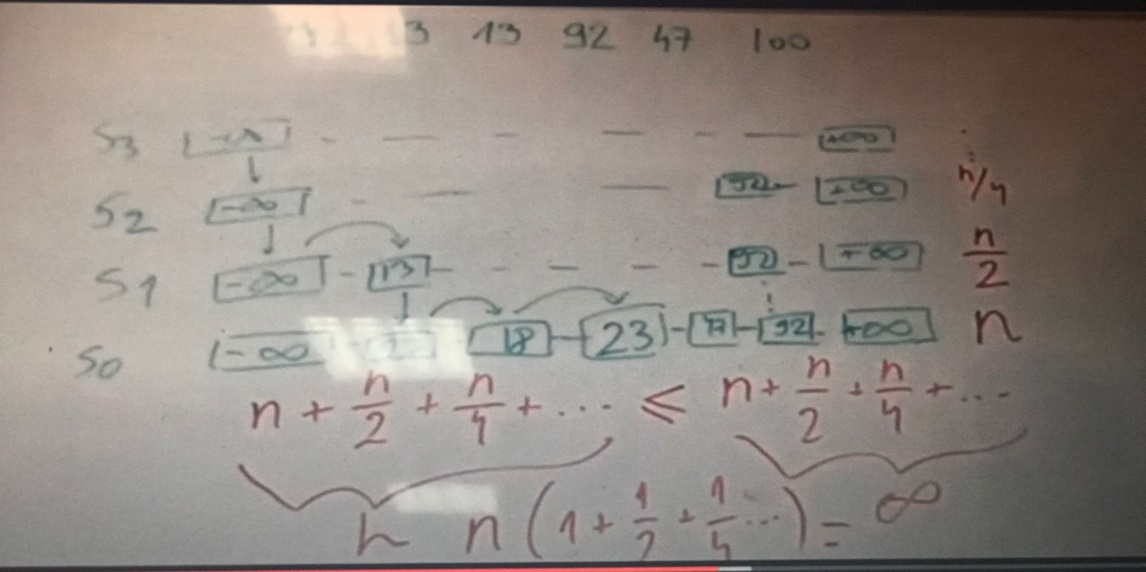 3 13 92 47 100
S3 +∞
S2 -∞ 92 +∞ n/4
S1 -∞ 13 92 +∞ n/2
S0 -∞ 18 23 92 +∞ n
n + n/2 + n/4 + ... ≤ n + n/2 + n/4 + ...
h ∞
n(1 + 1/2 + 1/4 ...) =